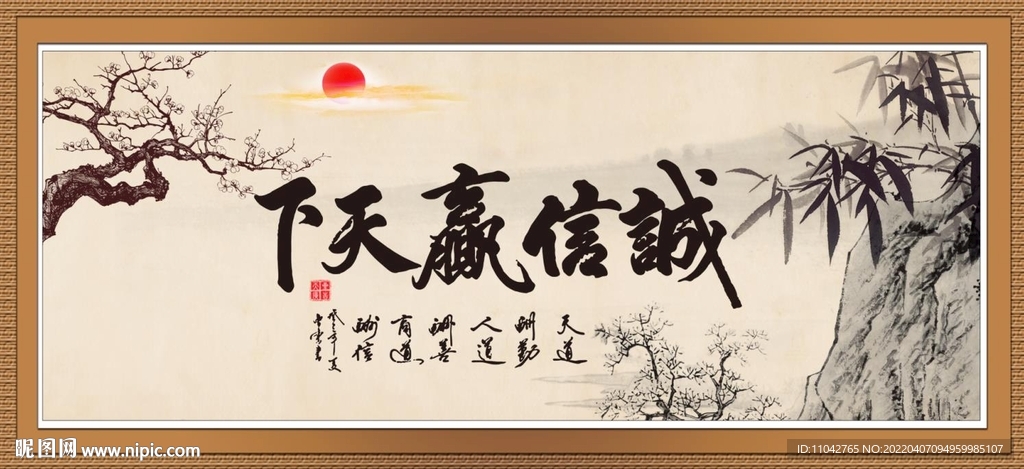 誠信贏天下
天道
酬勤
人道
酬善
商道
酬信
昵图网 www.nipic.com
ID:11042765 NO:20220407094959985107